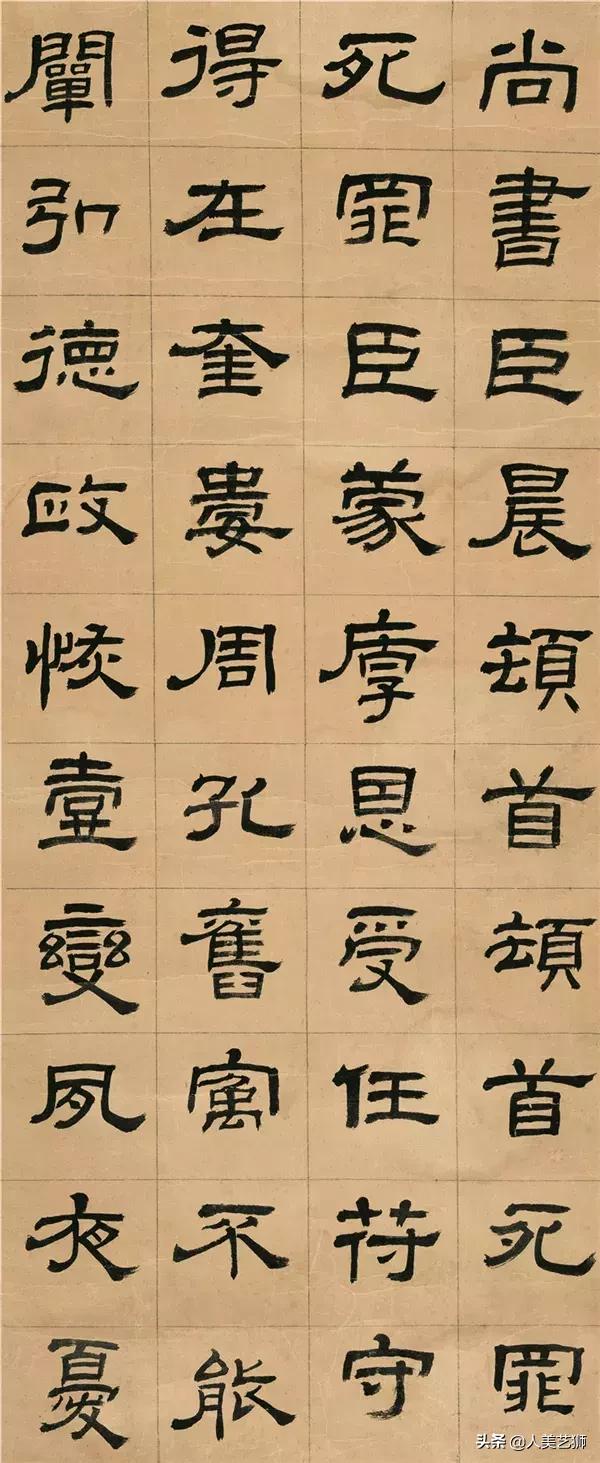 尚書臣晨頓首頓首死罪
死罪臣蒙厚恩受任符守
得在奎婁周孔舊寓不能
闡弘德政恢壹變夙夜憂
头条 @人美艺狮